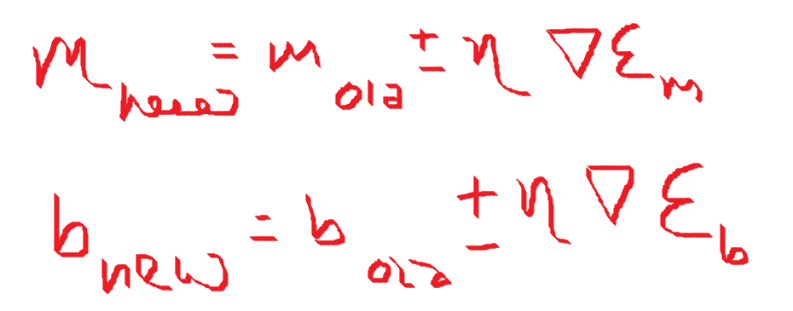 m_new = m_old ± η ∇ε_m
b_new = b_old ± η ∇ε_b